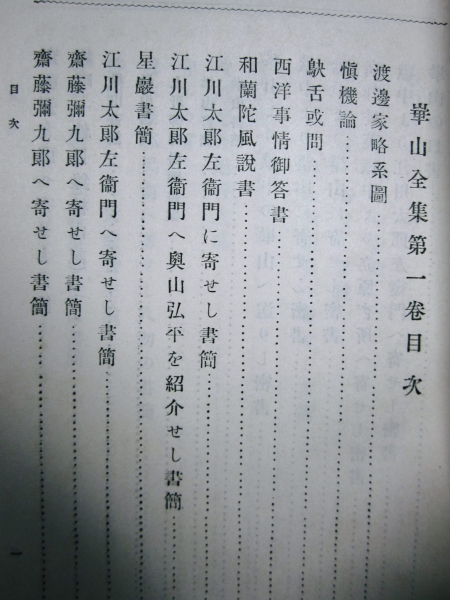 崋山全集第一卷目次
渡邊家略系圖
愼機論
鴃舌或問
西洋事情御答書
和蘭陀風說書
江川太郞左衞門に寄せし書簡
江川太郞左衞門へ奧山弘平を紹介せし書簡
星巖書簡
江川太郞左衞門へ寄せし書簡
齋藤彌九郞へ寄せし書簡
齋藤彌九郞へ寄せし書簡
目次
一